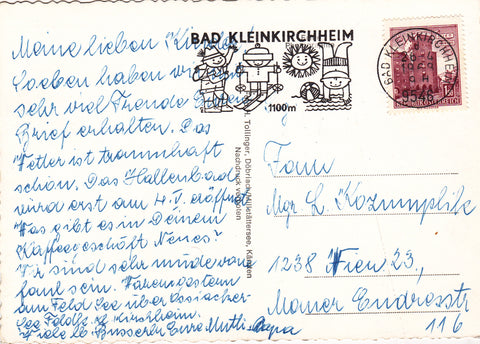 BAD KLEINKIRCHHEIM
1100m
BAD KLEINKIRCHHEIM
Meine lieben
Soeben haben wir mit
sehr viel Freude Euren
Brief erhalten. Das
Wetter ist traumhaft
schön. Das Hallenbad
wird erst am 4. V. eröffnet
Was gibt es in Deinem
Kaffeegeschäft Neues?
Wir sind sehr müde vom
faul sein. Waren gestern
am Feld See über Ossiacher
See Feldk. Kl. Kirchheim.
Viele lb. Busserln Eure Mutti - Papa
H. Tollinger, Döbriach/Millstättersee, Kärnten
Nachdruck verboten
Frau
Mgr. L.
1238 Wien 23,
Maurer
116